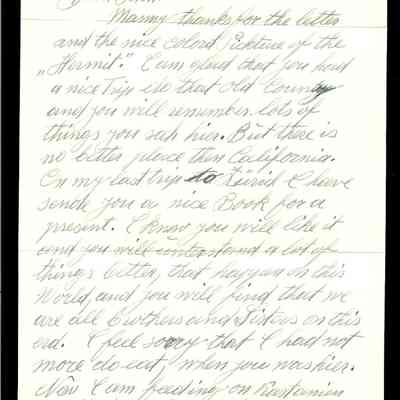 Manny thanks for the letter
and the nice colord Pickture of the
„Hermit." I am glad that you had
a nice Trip ito that old Country
and you will remember lots of
things you sah hier. But there is
no better place then California.
On my last trip to I have
sende you a nice Book for a
present. I know you will like it
and you will understand a lot of
things better, that happen on this
World, and you will find that we
are all Brothers and Sisters on this
I feel sorry that I had not
more do eat, when you was hier.
Now I am feeding on